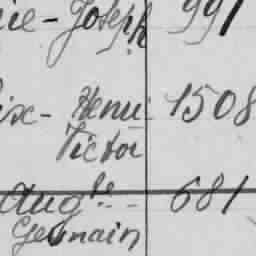 ie-Joseph 991
ix- Henri 1508
Victor
Aug.te - 681
Germain